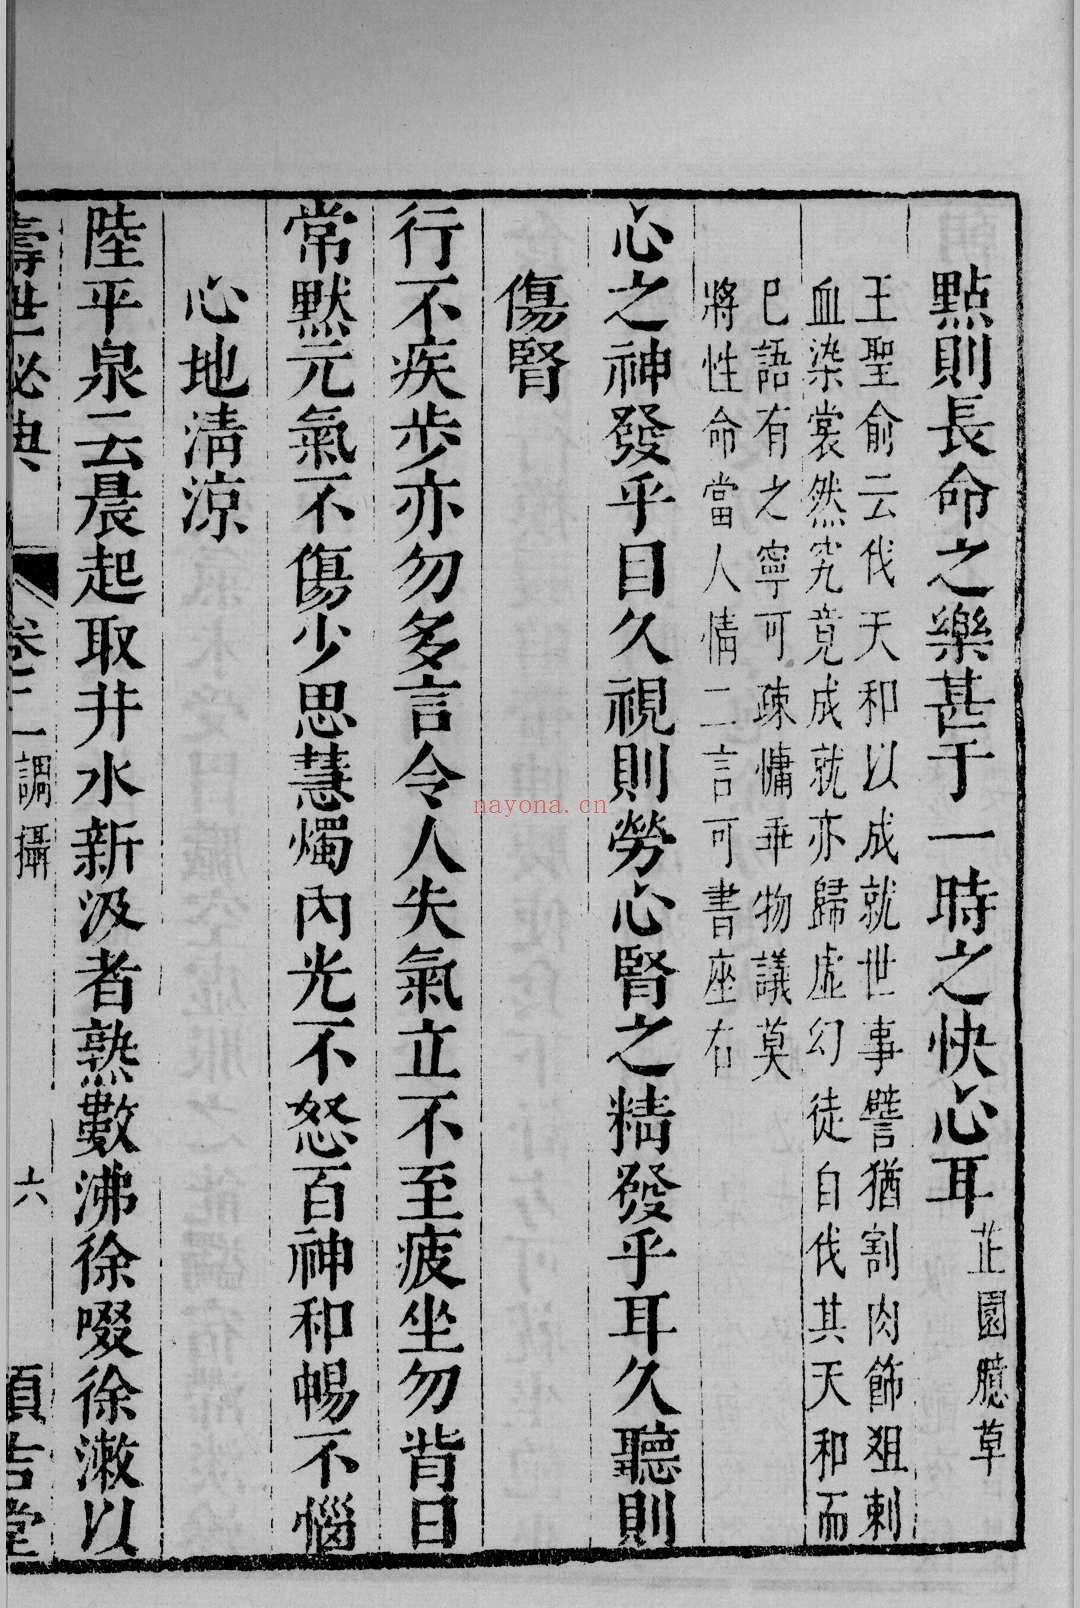 點則長命之樂甚于一時之快心耳芷園臆草
王聖俞云伐天和以成就世事譬猶割肉飾俎刺
血染裳然究竟成就亦歸虛幻徒自伐其天和而
已語有之寧可疎慵乖物議莫
將性命當人情二言可書座右
心之神發乎目久視則勞心腎之精發乎耳久聽則
傷腎
行不疾步亦勿多言令人失氣立不至疲坐勿背日
常默元氣不傷少思慧燭內光不怒百神和暢不惱
心地清涼
陸平泉云晨起取井水新汲者熟數沸徐啜徐漱以
壽世秘典 卷二 調攝 六 頤吉堂
nayona.cn